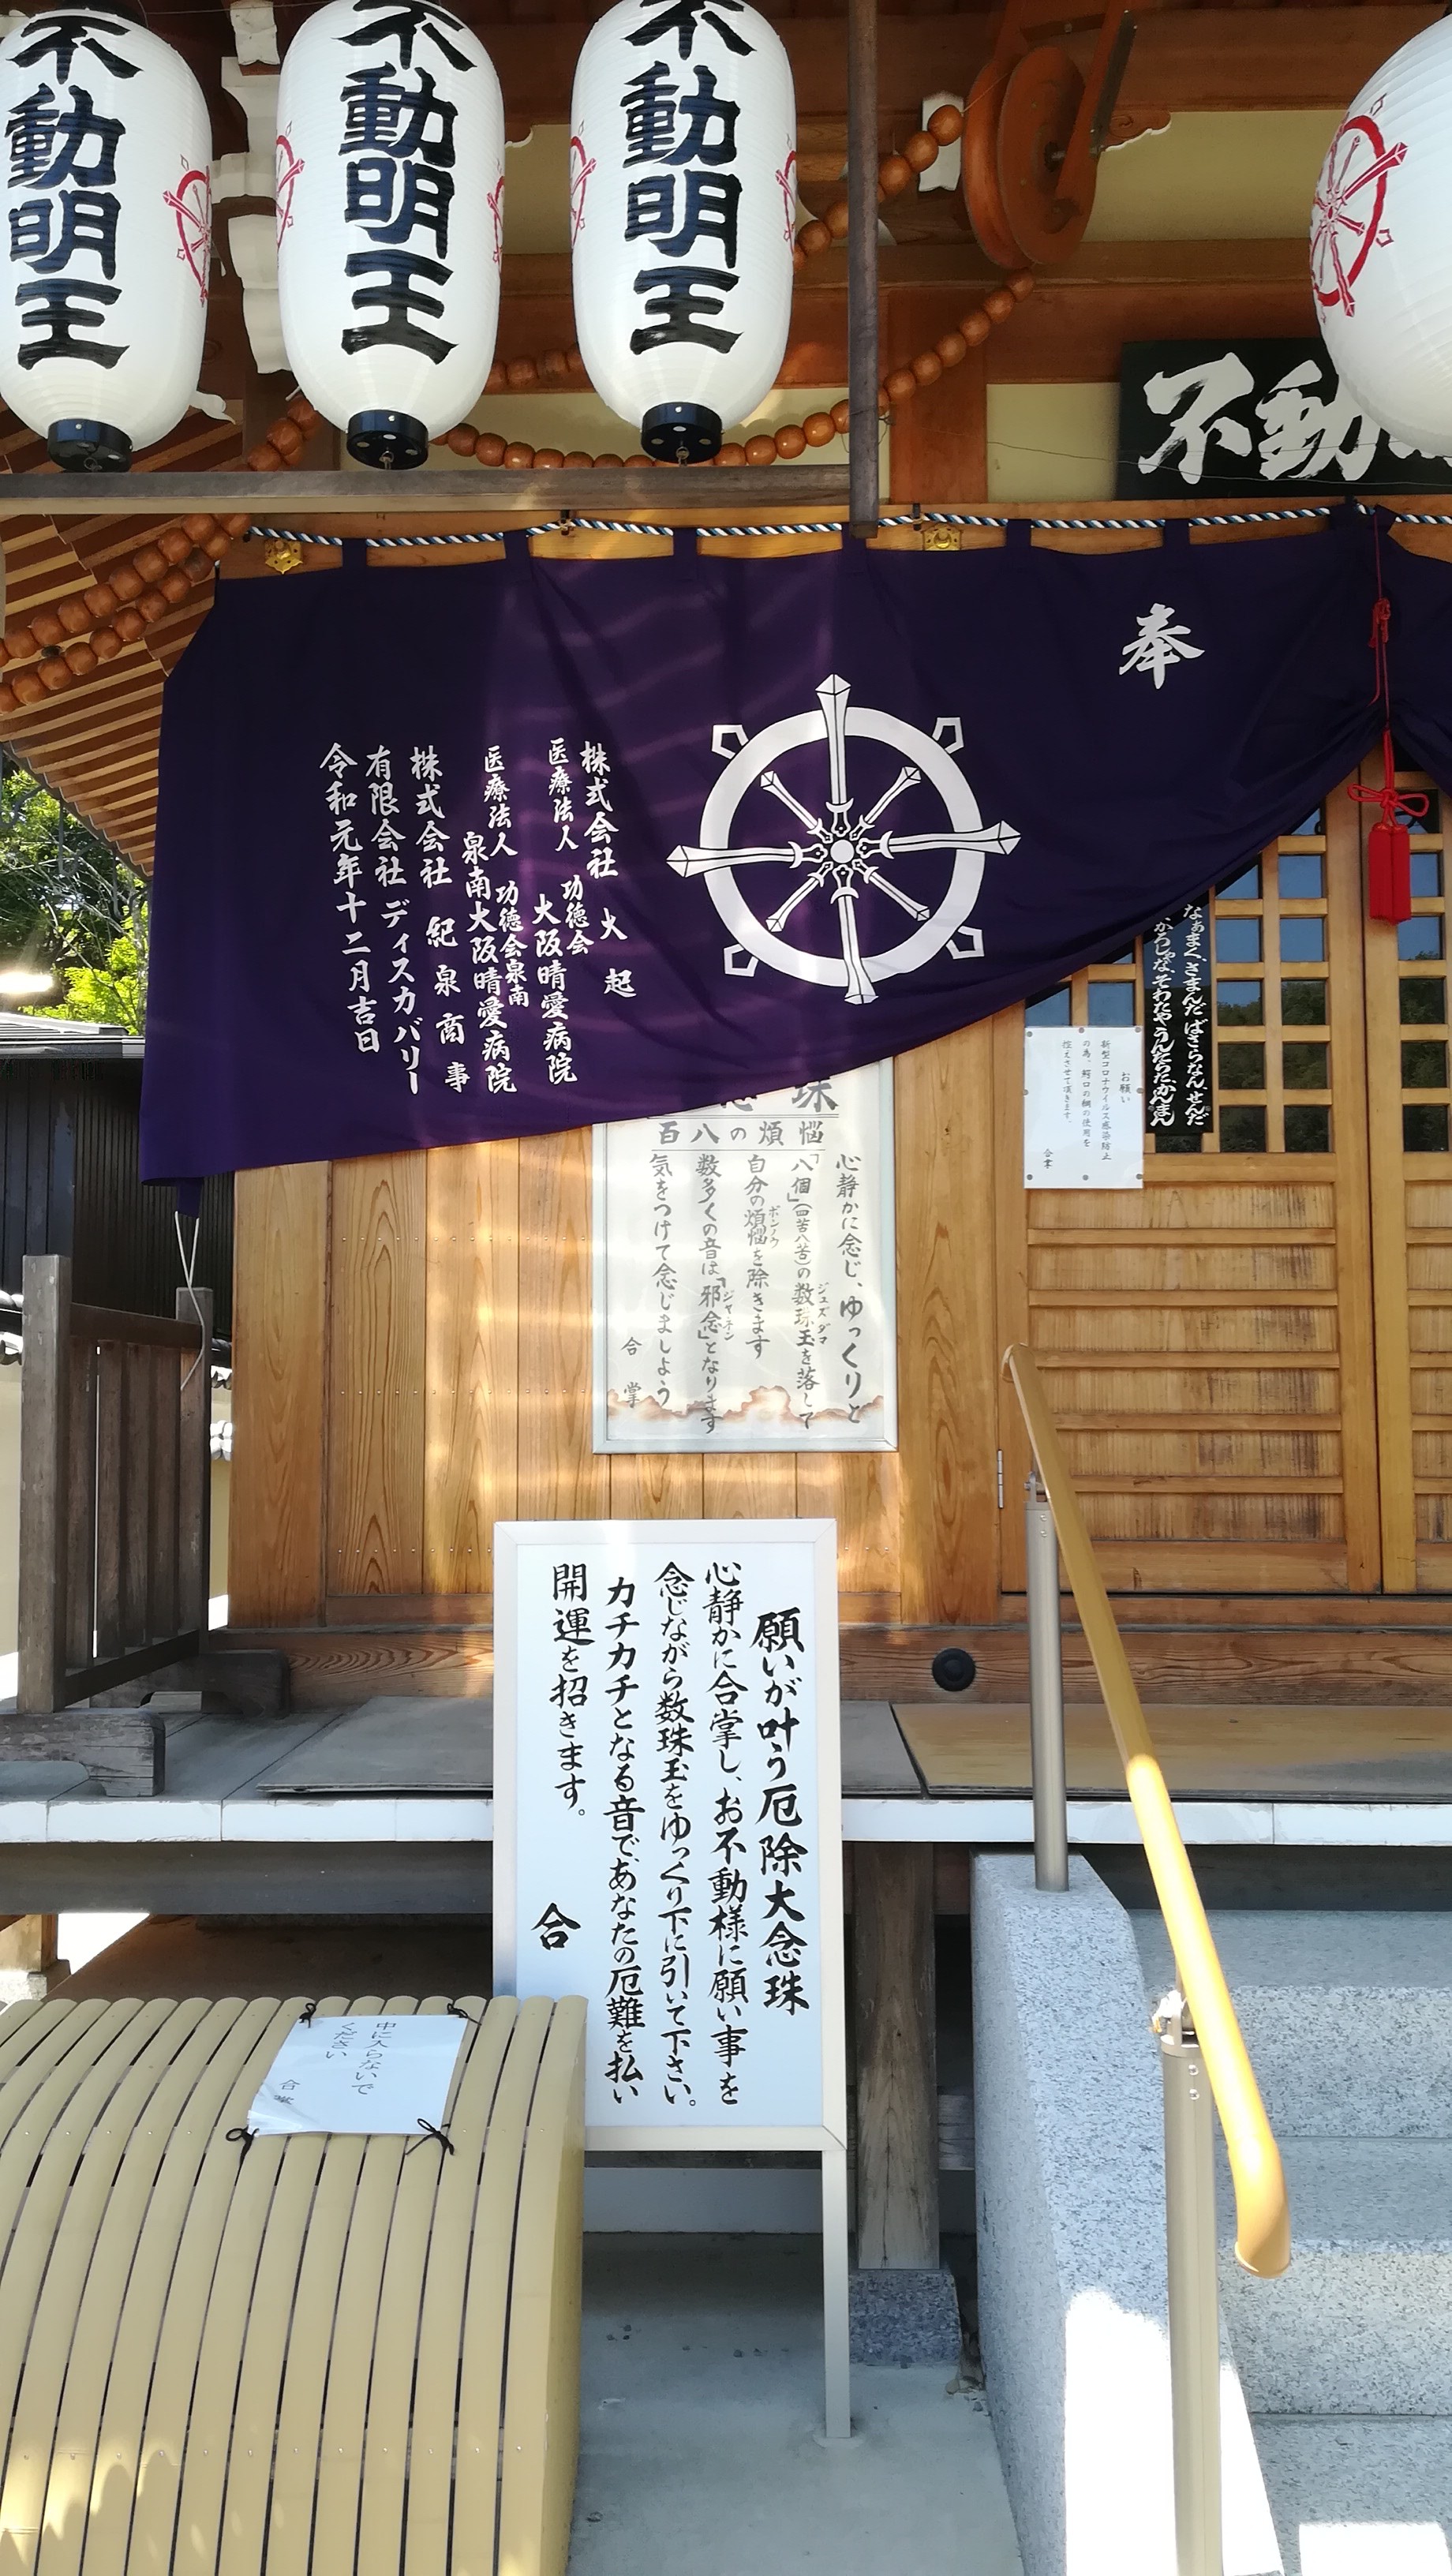 不動明王
不動明王
不動明王
不動
奉
株式会社 火起
医療法人 功徳会
大阪晴愛病院
医療法人 功徳会泉南
泉南大阪晴愛病院
株式会社 紀泉商事
有限会社 ディスカバリー
令和元年十二月吉日
なぁまく、さまんだ ばさらなん、せんだ
かろしゃな、そわたや うんたらた、かんまん
お願い
新型コロナウイルス感染防止
の為、鰐口の綱の使用を
控えさせて頂きます。
合掌
珠
百八の煩悩
心静かに念じ、ゆっくりと
「八個」(四苦八苦)の数珠玉を落して
ジュズダマ
自分の煩悩を除きます
ボンノウ
数多くの音は「邪念」となります
ジャネン
気をつけて念じましょう
合掌
願いが叶う厄除大念珠
心静かに合掌し、お不動様に願い事を
念じながら数珠玉をゆっくり下に引いて下さい。
カチカチとなる音で、あなたの厄難を払い
開運を招きます。
合
中に入らないで
ください
合掌